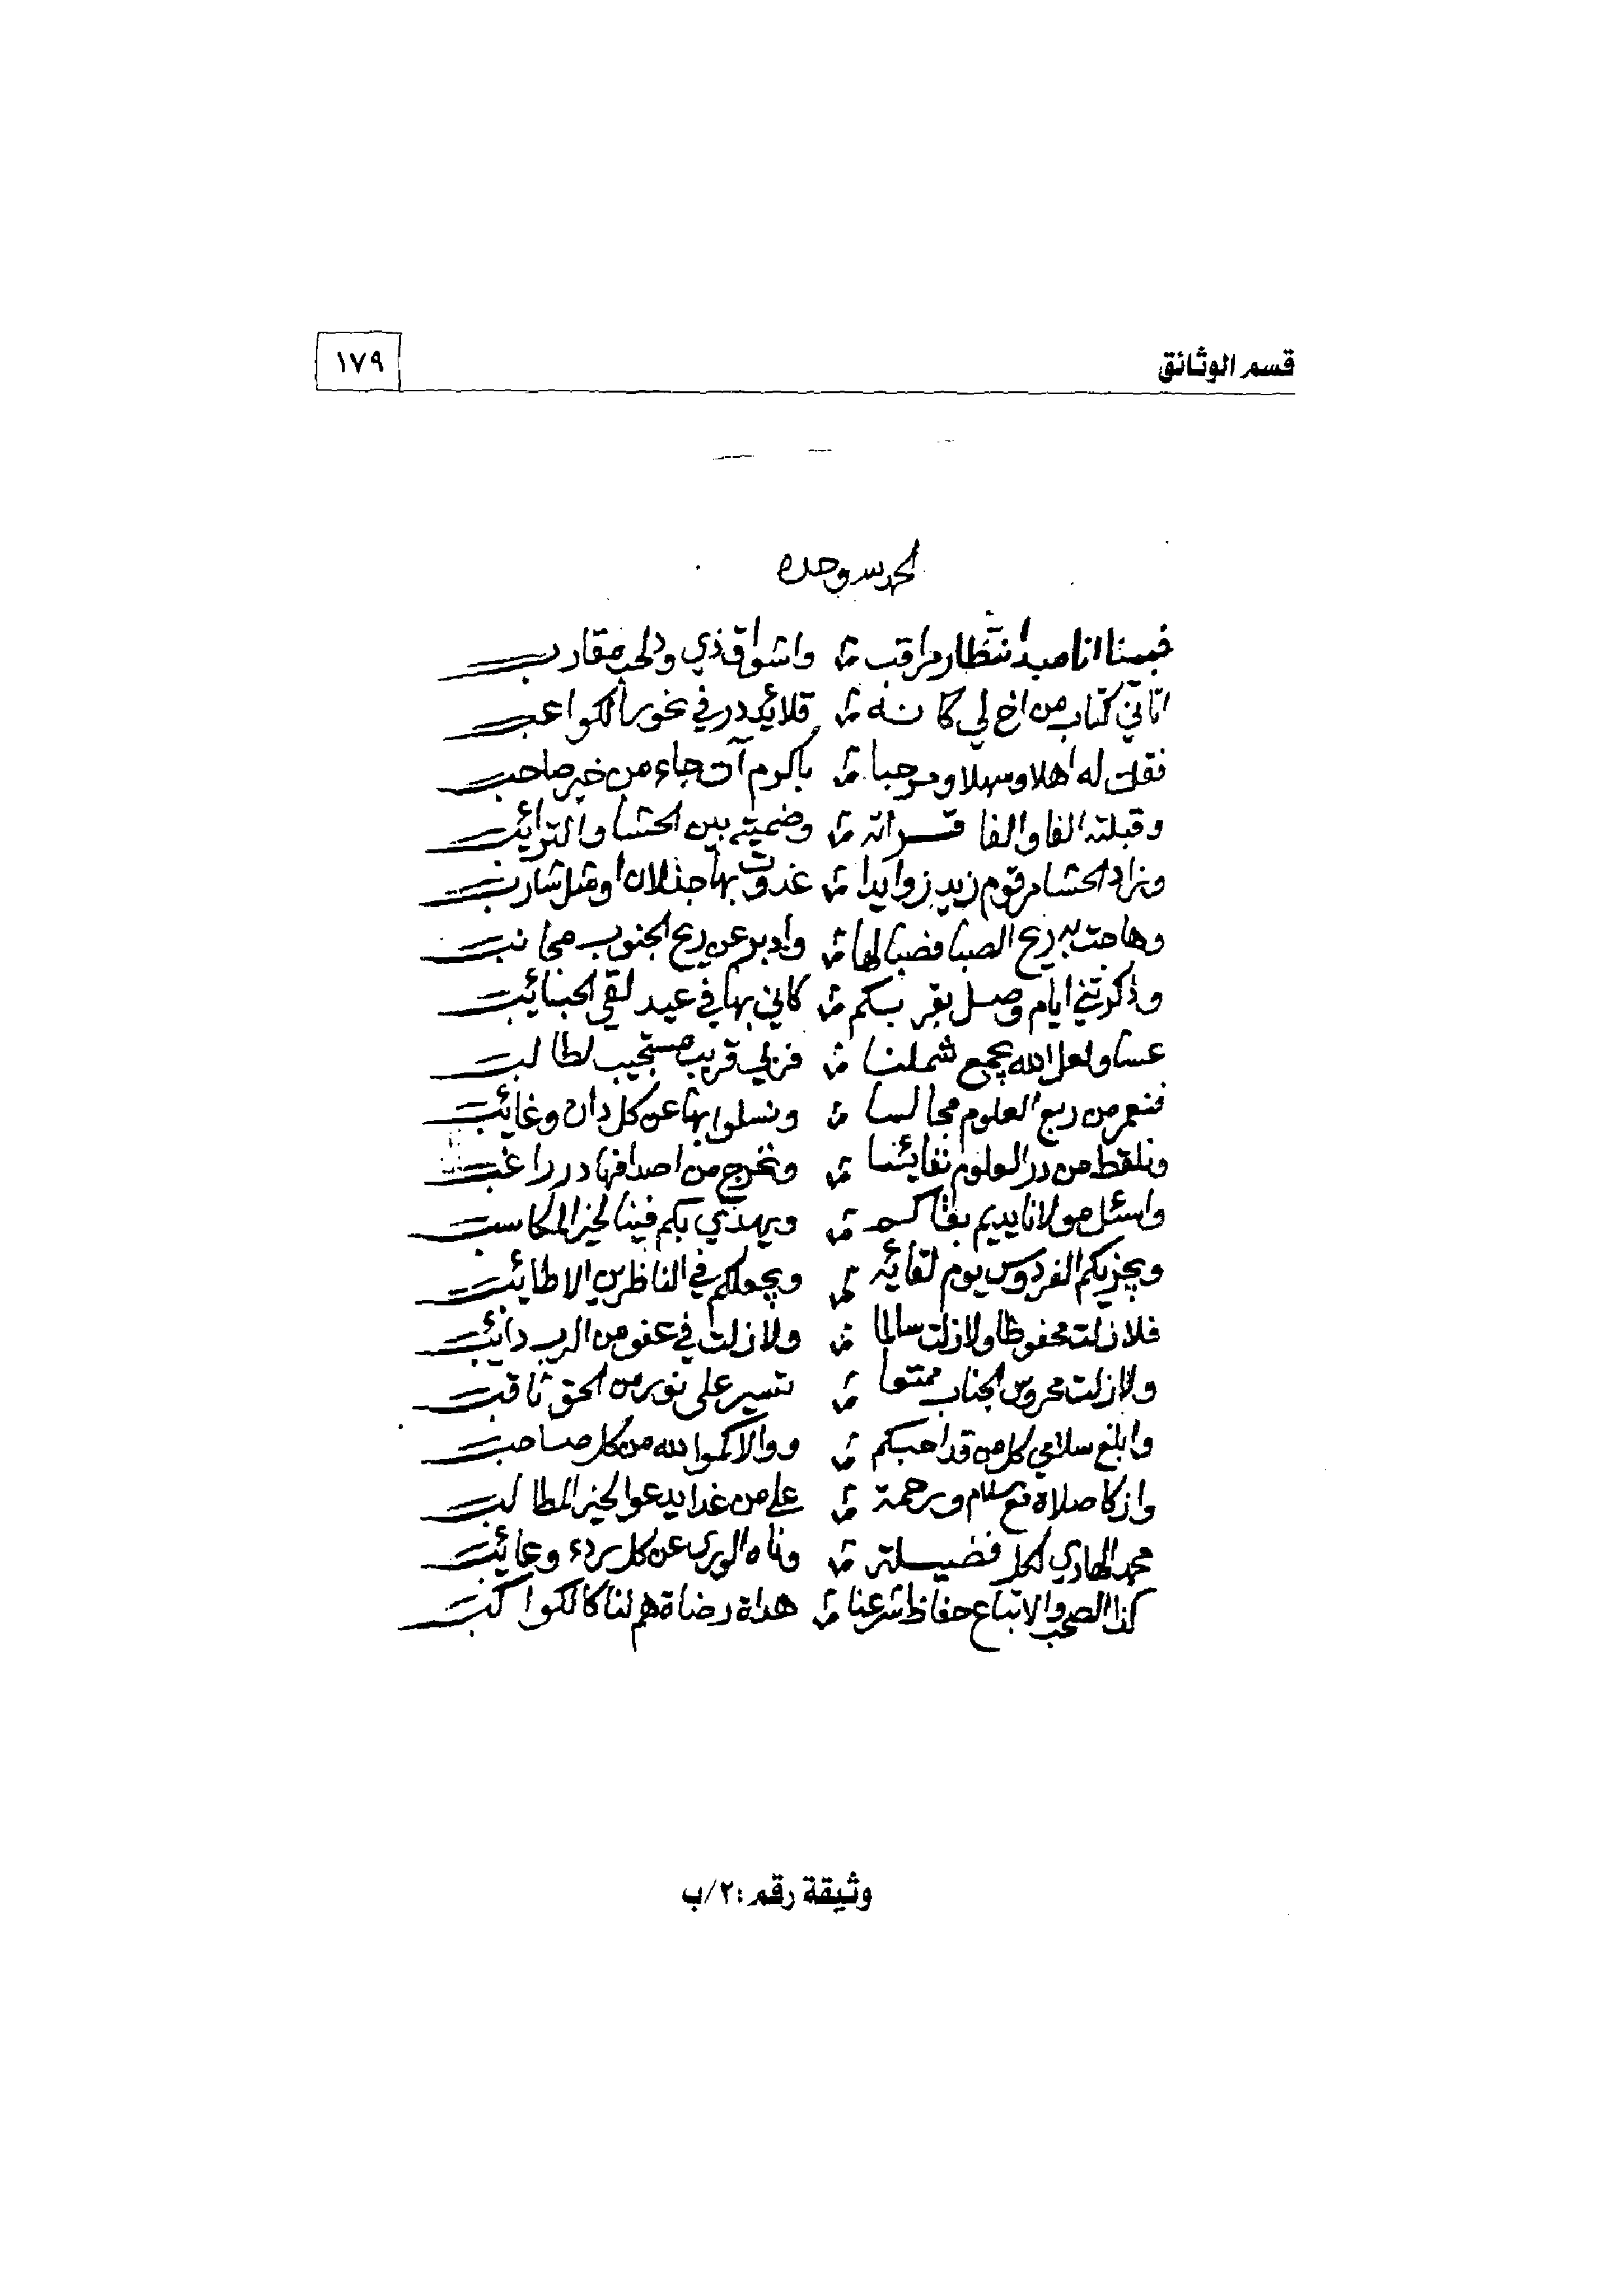 قسم الوثائق ١٧٩
الحمد لله وحده
فبينا انا مبدا نتظار مراقب واشواق ذي ود لحب مقارب
اتاني كتاب من اخ لي كانه قلائد در في نحور الكواعب
فقلت له اهلا وسهلا ومرحبا باكرم آت جاء من خير صاحب
وقبلته الفا والفا قراته وضميته بين الحشا والترائب
وزاد الحشا مرقوم زيد زوايدا غدوت بها جذلان او مثل شارب
وهاجت به ريح الصبا فصبا لها وادبر عن ريح الجنوب مجانب
وذكرتني ايام وصل بقربكم كاني بها في عيد لقي الحبائب
عسا ولعل الله يجمع شملنا فربي قريب مستجيب لطالب
فنعمر من ربع العلوم مجالسا ونسلوا بها عن كل دان وغائب
ونلقط من در العلوم نفائسا ونخرج من اصدافها در راغب
واسئل مولانا يديم بقاكم ويهدي بكم فينا لخير المكاسب
ويجزيكم الفردوس يوم لقائه ويجعلكم في الناظرين الاطائب
فلا زلت محفوظا ولا زلت سالما ولا زلت في عفو من الرب دائب
ولا زلت محروس الجناب ممتعا تسير على نور من الحق ثاقب
وابلغ سلامي كل من قد احبكم ووالاكموا لله من كل صاحب
وازكا صلاة مع سلام ورحمة على من غدا يدعو لخير المطالب
محمد الهادي لكل فضيلة وناه الورى عن كل رد وعائب
كذا الصحب والاتباع حفاظ شرعنا هداة رضاة هم لنا كالكواكب
وثيقة رقم :٢/ب